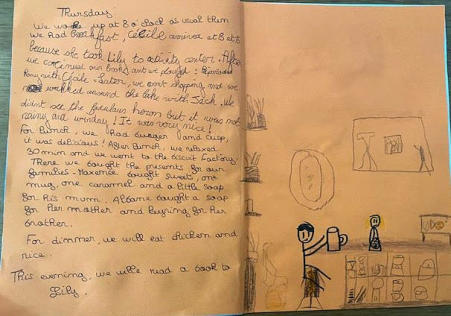 Thursday
We woke up at 8 o'clock as usual then
we had breakfast, Cécile arrived at 8 et 8
because she took Lily to activity center. After
we continued our books and we played
with Cécile. Later, we went shopping and we
walked around the lake with Jack. We
didn't see the fabulous heron but it was not
rainy and winday! It was very nice!
For lunch, we had burger and crisp,
it was delicious! After lunch, we relaxed
30 min and we went to the biscuit factory.
There we bought the presents for our
families. Maxence bought sweat, one
mug, one caramel and a little soap
for his mum. Albane bought a soap
for her mother and for her
brother.
For dinner, we will eat chicken and
rice.
This evening, we will read a book to
Lily.